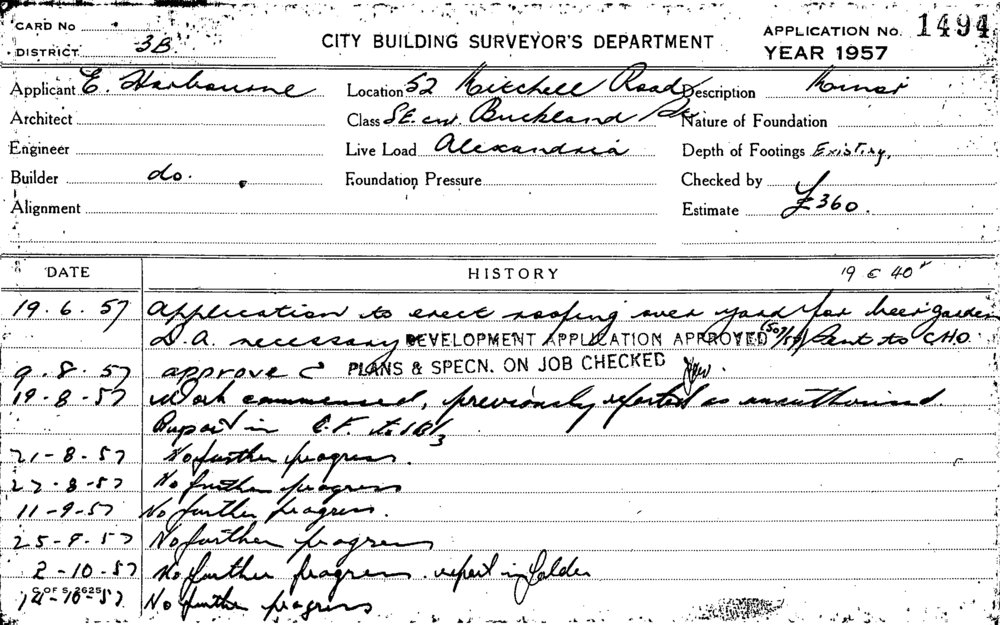 CARD No
DISTRICT 3B
CITY BUILDING SURVEYOR'S DEPARTMENT
APPLICATION No. 1494
YEAR 1957
Applicant E. Harbourne
Location 52 Mitchell Road
Description Minor
Architect
Class SE. cnr. Buckland
Nature of Foundation
Engineer
Live Load Alexandria
Depth of Footings Existing.
Builder do.
Foundation Pressure
Checked by
Alignment
Estimate £360.
DATE HISTORY
19.6.57 Application to erect roofing over yard for beer garden
D.A. necessary DEVELOPMENT APPLICATION APPROVED Sent to C.H.O.
9.8.57 approve PLANS & SPECN. ON JOB CHECKED
19-8-57 Work commenced, previously reported as unauthorised.
in C.F.
21-8-57 No further progress.
27-8-57 No further progress
11-9-57 No further progress.
25-9-57 No further progress
2-10-57 No further progress. report in folder
14-10-57 No further progress